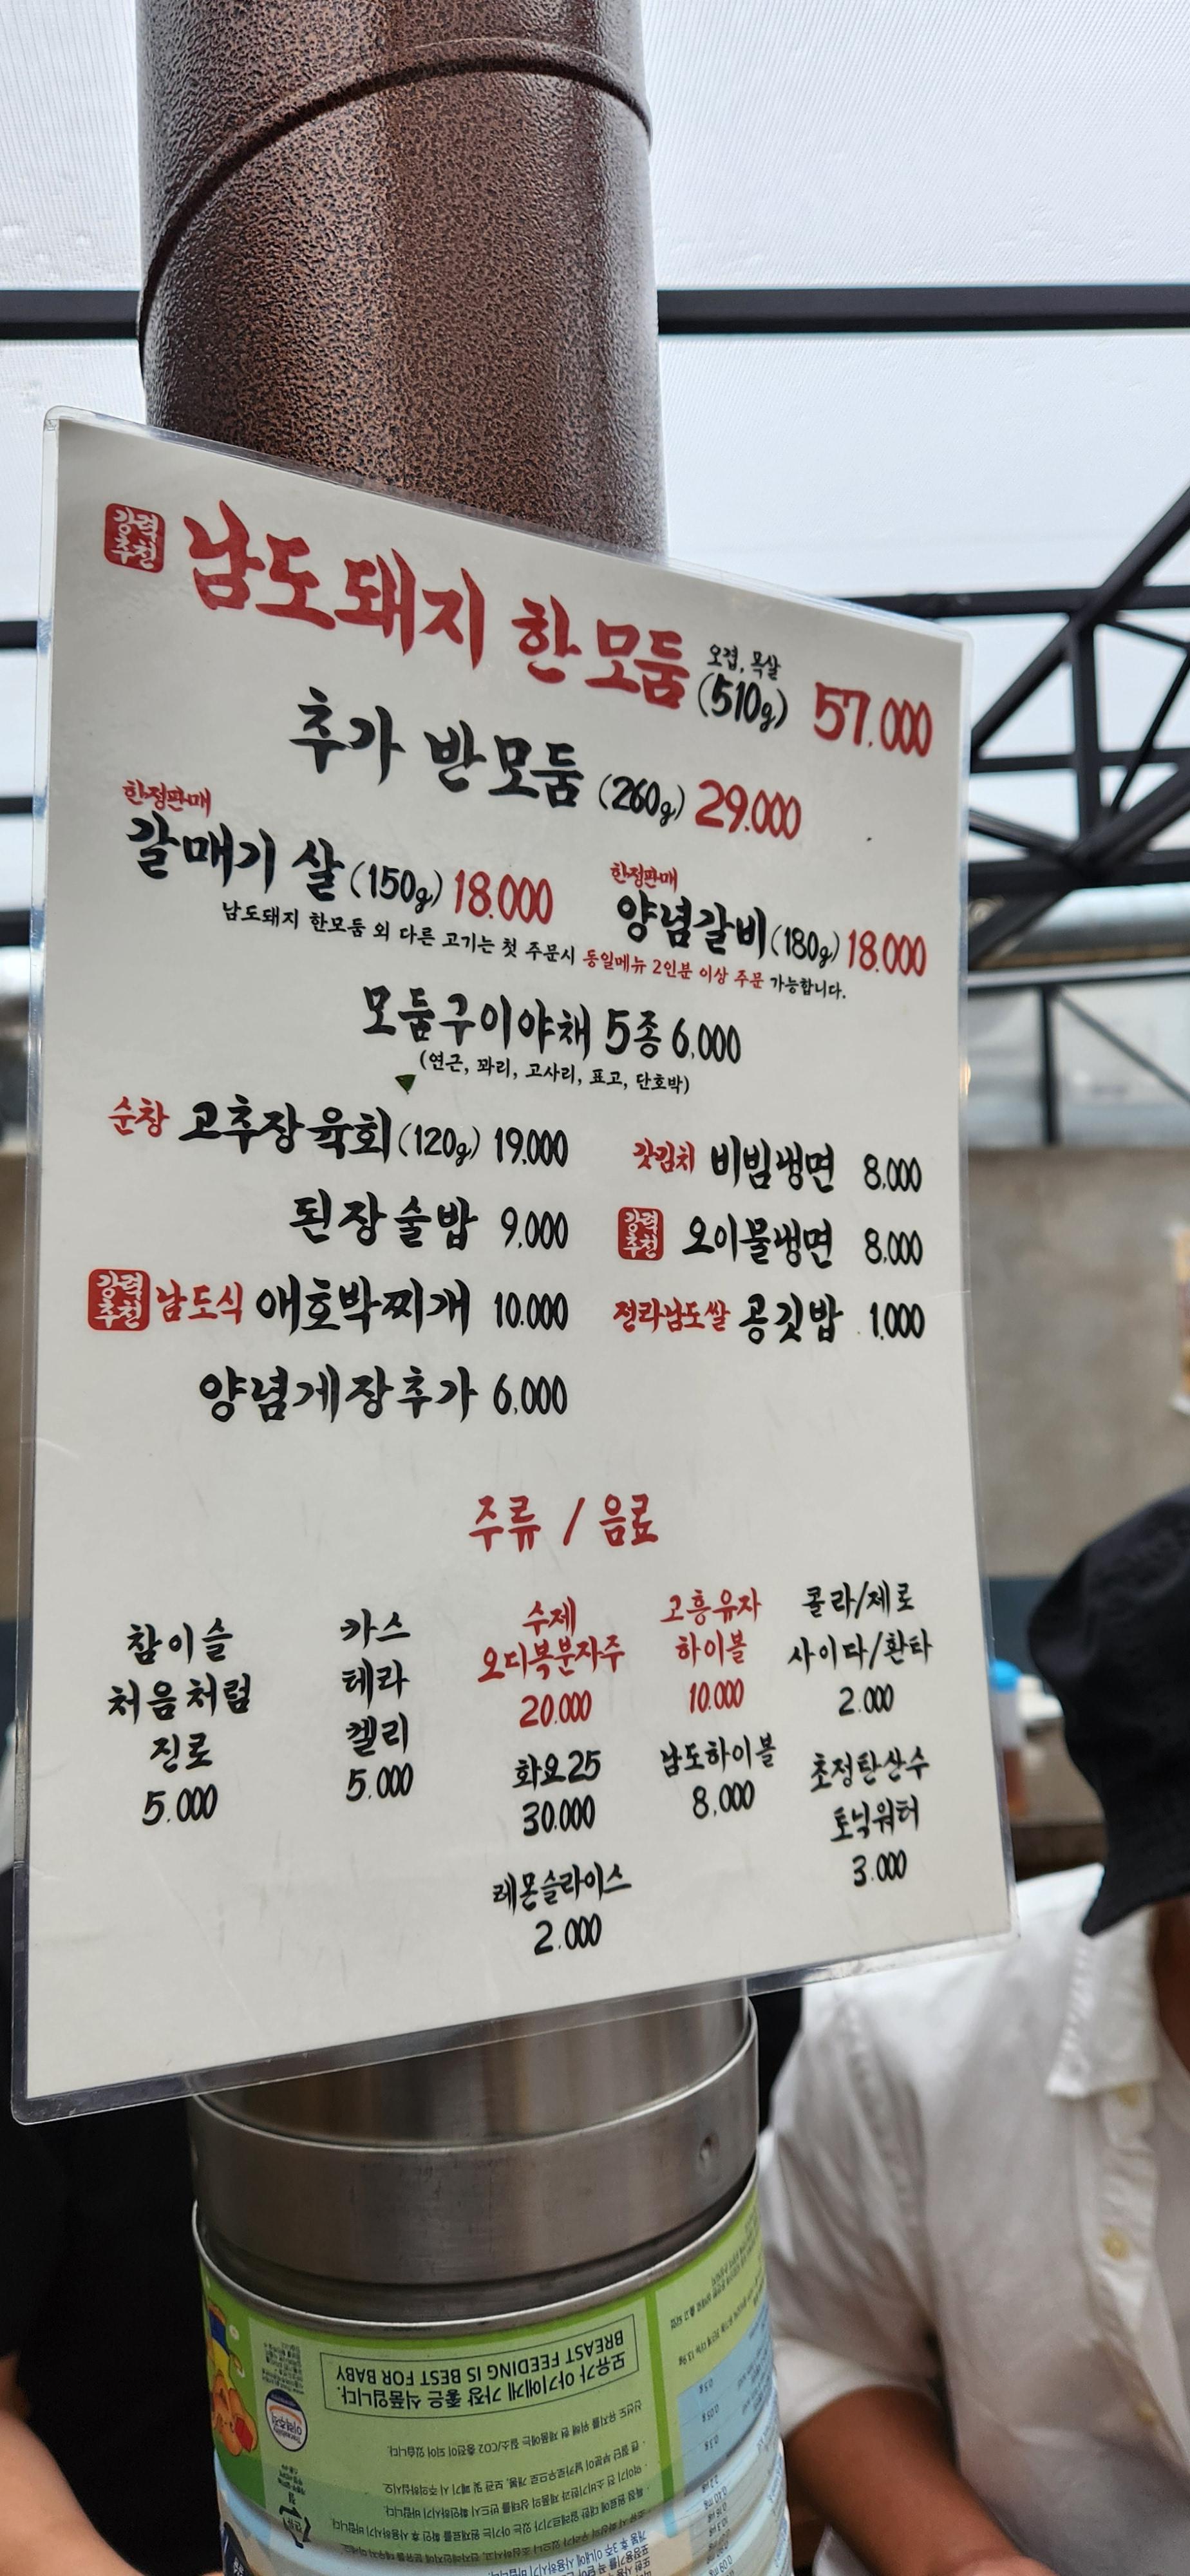 강력추천 남도돼지 한모둠 오겹, 목살 (510g) 57.000
추가 반모둠 (260g) 29.000
한정판매
갈매기 살 (150g) 18.000
한정판매
양념갈비 (180g) 18.000
남도돼지 한모둠 외 다른 고기는 첫 주문시 동일메뉴 2인분 이상 주문 가능합니다.
모둠구이야채 5종 6,000
(연근, 꽈리, 고사리, 표고, 단호박)
순창 고추장육회 (120g) 19,000
된장술밥 9,000
강력추천 남도식 애호박찌개 10.000
양념게장추가 6,000
갓김치 비빔냉면 8,000
강력추천 오이물냉면 8,000
전라남도쌀 공깃밥 1,000
주류 / 음료
참이슬
처음처럼
진로
5.000
카스
테라
켈리
5.000
수제
오디복분자주
20.000
화요25
30.000
레몬슬라이스
2.000
고흥유자
하이볼
10.000
남도하이볼
8,000
콜라/제로
사이다/환타
2.000
초정탄산수
토닉워터
3.000
모유가 아기에게 가장 좋은 식품입니다.
BREAST FEEDING IS BEST FOR BABY